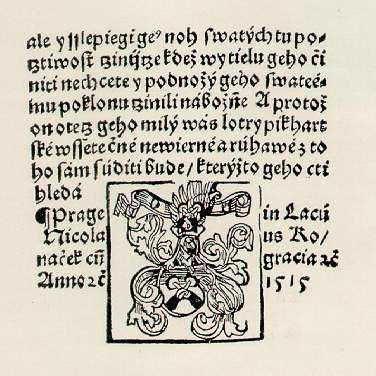 ale y sslepiegi geˀ noh swatých tu po-
cztiwost tzinijtze kdež wy tielu geho či
niti nechcete y podnožý geho swateé-
mu poklonu tzinili nábožňe A protož
on otetz geho milý wás lotry pikhart
ské wssetečné newierné a rúhawé z to
ho sám súditi bude / kterýžto geho cti
hledá
¶ Prage in Lacu
Nicola us Ko/
náček ciῆ gracia ⁊č
Anno ⁊č 1515